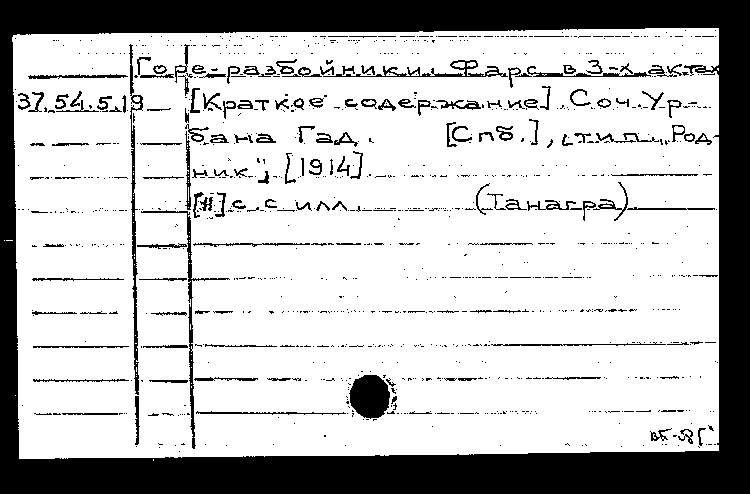 Горе-разбойники. Фарс в 3-х актах
37.54.5.19 [Краткое содержание]. Соч. Ур-
бана Гад. [Спб.], тип. „Род-
ник", [1914].
с. с илл. (Танагра).